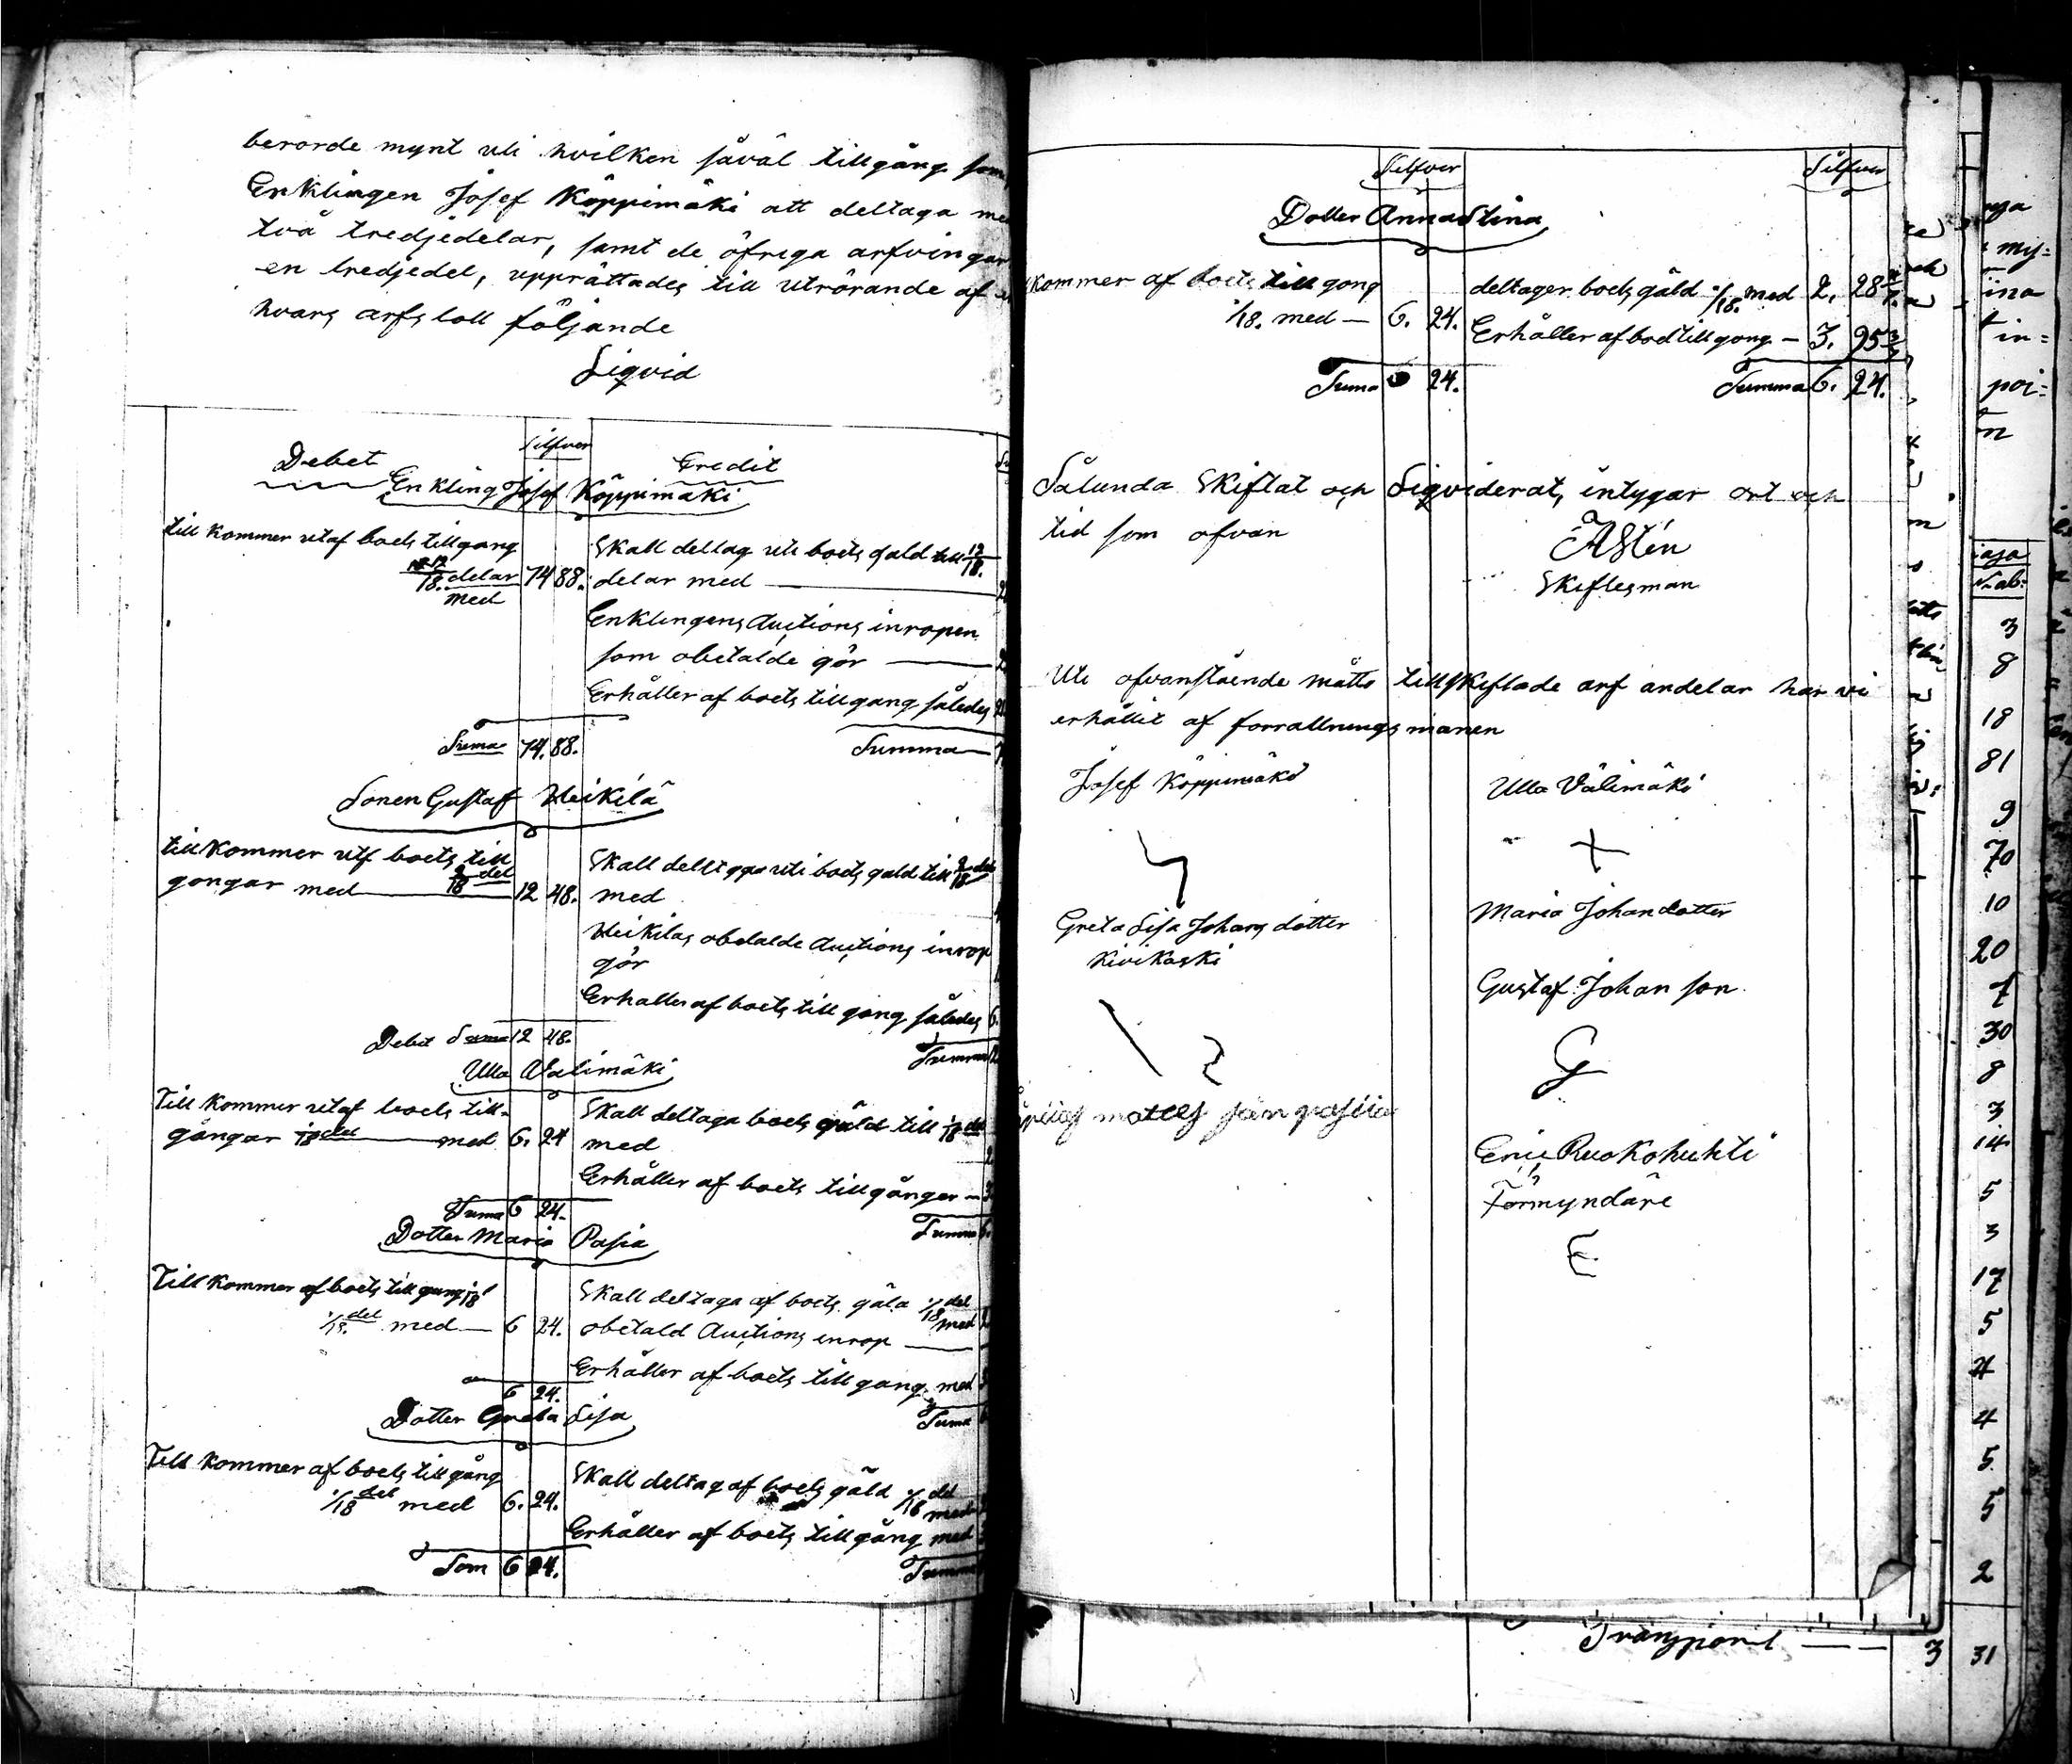 berörde mynt uti hvilken såväl tillgång som
Enklingen Josef Köppimäki att deltaga med
två tredjedelar, samt de öfriga arfvingar
en tredjedel, upprättades till utrörande af
hvars arfs lott följande
Liqvid
Debet
Silfver
Credit
Enkling Josef Köppimäki
till kommer utaf boets tillgang
12/18. delar 74 88.
med
Skall deltag uti boets gäld till 12/18.
delar med
Enklingens Auctions inropen
som obetalde gör
Erhåller af boets tillgang således
Suma 74. 88.
Summa
Sonen Gustaf Heikilä
till kommer utf boets till
gongar med 2/18 del 12 48.
Skall delltaga uti boets gäld till 2/18 del
med
Heikilas obetalde Auctions inrop
gör
Erhaller af boets till gong således 6.
Debet Suma 12 48.
Summa
Ulla Välimäki
Till kommer utaf boets till-
gångar 1/18 del med 6. 24
Skall deltaga boets gäld till 1/18 del
med
Erhåller af boets tillgånger
Suma 6 24.
Summa
Dotter Maria Pasia
Till kommer af boets till gang 1/18
1/18. del med 6 24.
Skall deltaga af boets gäld 1/18 del
med
obetald Auctions inrop
Erhåller af boets till gang med
6 24.
Suma
Dotter Greta Lisa
Till kommer af boets tillgång
1/18 del med 6. 24.
Skall deltag af boets gäld 1/18 del
med
Erhåller af boets tillgång med
Som 6 24.
Summa
Silfver
Silfver
Dotter Anna Stina
kommer af boets till gong
1/18. med 6. 24.
deltager boets gäld 1/18. med 2. 28
Erhåller af bod till gong 3. 95 3/7
Suma 6 24.
Summa 6. 24.
Sålunda Skiftat och Liqviderat, intygar ort och
tid som ofvan
Skiftesman
Uti ofvanstående måtto tillskiftade arf andelar har vi
erhållit af forrattnings manen
Josef Köppimäki
Ulla Välimäki
Greta Lisa Johans dotter
Kivikoski
Maria Johandotter
Gustaf Johan son
G
mattes
Eric Ruokohuhti
Förmyndäre
E
Transport 3 31
my=
in=
poi=
3
8
18
81
9
70
10
20
7
30
8
3
14
5
3
17
5
4
4
5
5
2